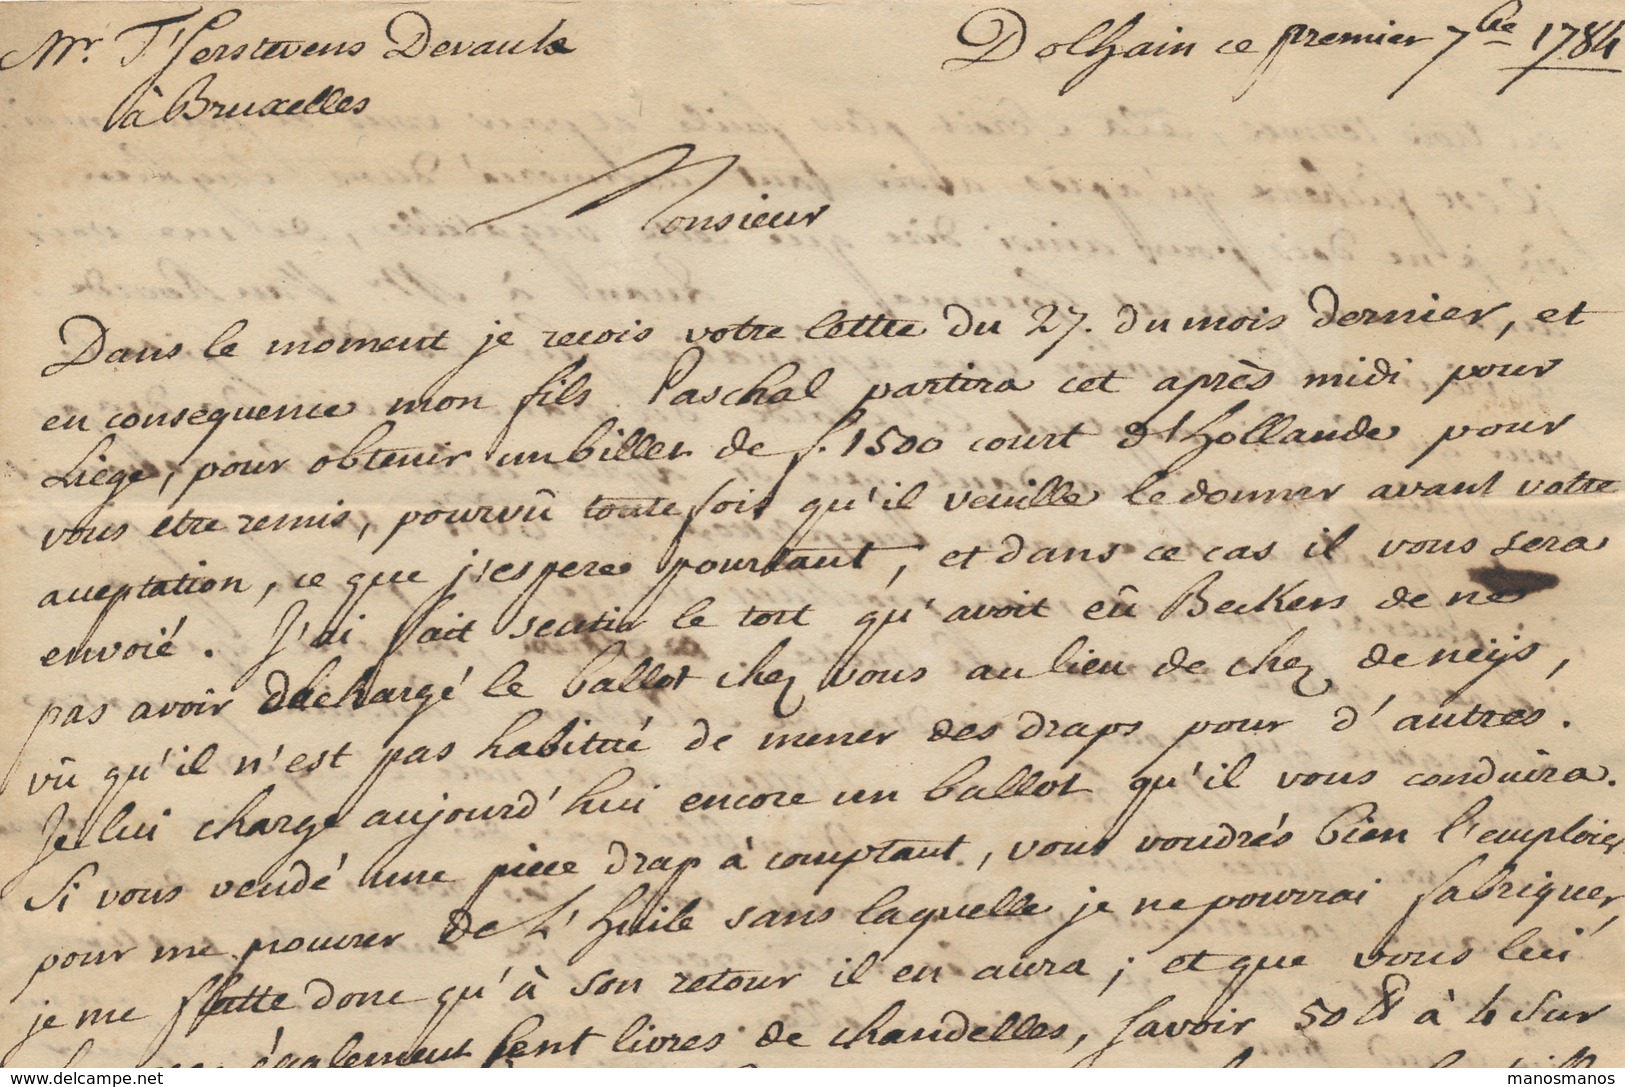 Mr. T'Serstevens Devaulx
à Bruxelles
Dolhain ce premier 7bre 1784
Monsieur
Dans le moment je recois votre lettre du 27. du mois dernier, et
en consequence mon fils Paschal partira cet après midi pour
Liége, pour obtenir un billet de f. 1500 court d'Hollande pour
vous etre remis, pourvû toute fois qu'il veuille le donner avant votre
acceptation, ce que j'espere pourtant, et dans ce cas il vous sera
envoié. J'ai fait sentir le tort qu'avoit eû Beckers de ne
pas avoir déchargé le ballot chez vous au lieu de chez deneijs,
vû qu'il n'est pas habitué de mener des draps pour d'autres.
Je lui charge aujourd'hui encore un ballot qu'il vous conduira.
Si vous vendé une piece drap à comptant, vous voudrés bien l'emploier
pour me procurer de L'huile sans laquelle je ne pourrai fabriquer,
je me flatte donc qu'à son retour il en aura; et que vous lui
également cent livres de chandelles, savoir 50 lb à 4 sur
manosmanos